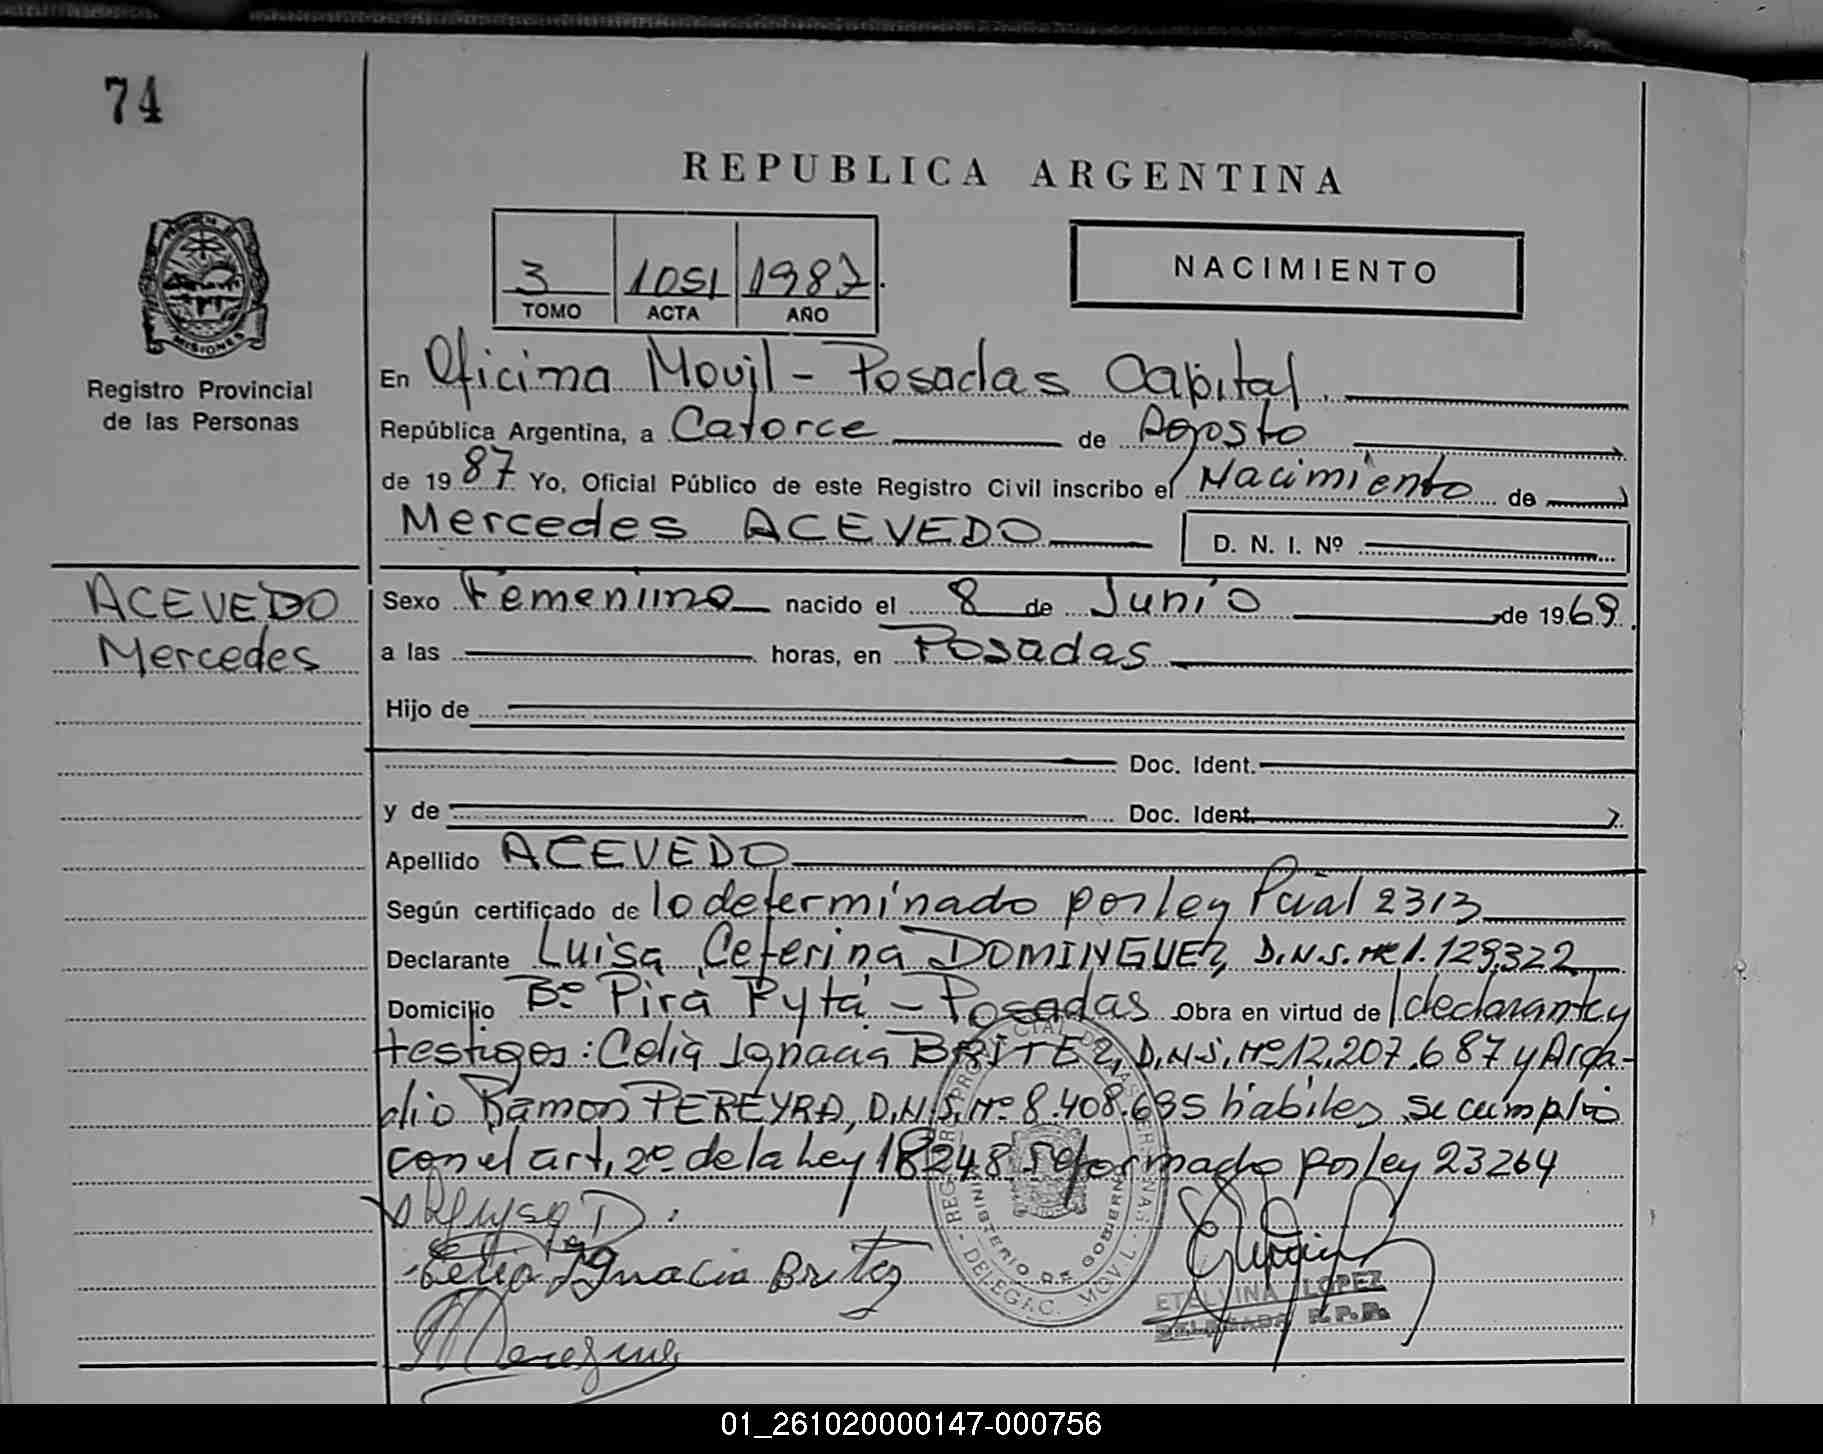 74
REPUBLICA ARGENTINA
3 1051 1987
TOMO ACTA AÑO
NACIMIENTO
MISIONES
Registro Provincial
de las Personas
En Oficina Movil - Posadas Capital
República Argentina, a Catorce de Agosto
de 1987 Yo, Oficial Público de este Registro Civil inscribo el Nacimiento de
Mercedes ACEVEDO D. N. I. Nº
ACEVEDO
Mercedes
Sexo Femenino nacido el 8 de Junio de 1969
a las horas, en Posadas
Hijo de
Doc. Ident.
y de Doc. Ident.
Apellido ACEVEDO
Según certificado de lo determinado por ley Pcial 2313
Declarante Luisa Ceferina DOMINGUEZ, D.N.I. Nº 1.129.322
Domicilio Bº Pirá Pytá - Posadas Obra en virtud de declarante y
testigos: Celia Ignacia BRITEZ, D.N.I. Nº 12.207.687 y Arca-
dio Ramon PEREYRA, D.N.I. Nº 8.408.635 hábiles se cumplió
con el art. 2º de la Ley 18248 reformado por ley 23264
Celia Ignacia Britez
MINISTERIO DE GOBIERNO
DELEGAC. MOVIL
ETELVINA LOPEZ
DELEGADA R.P.P.
01_261020000147-000756